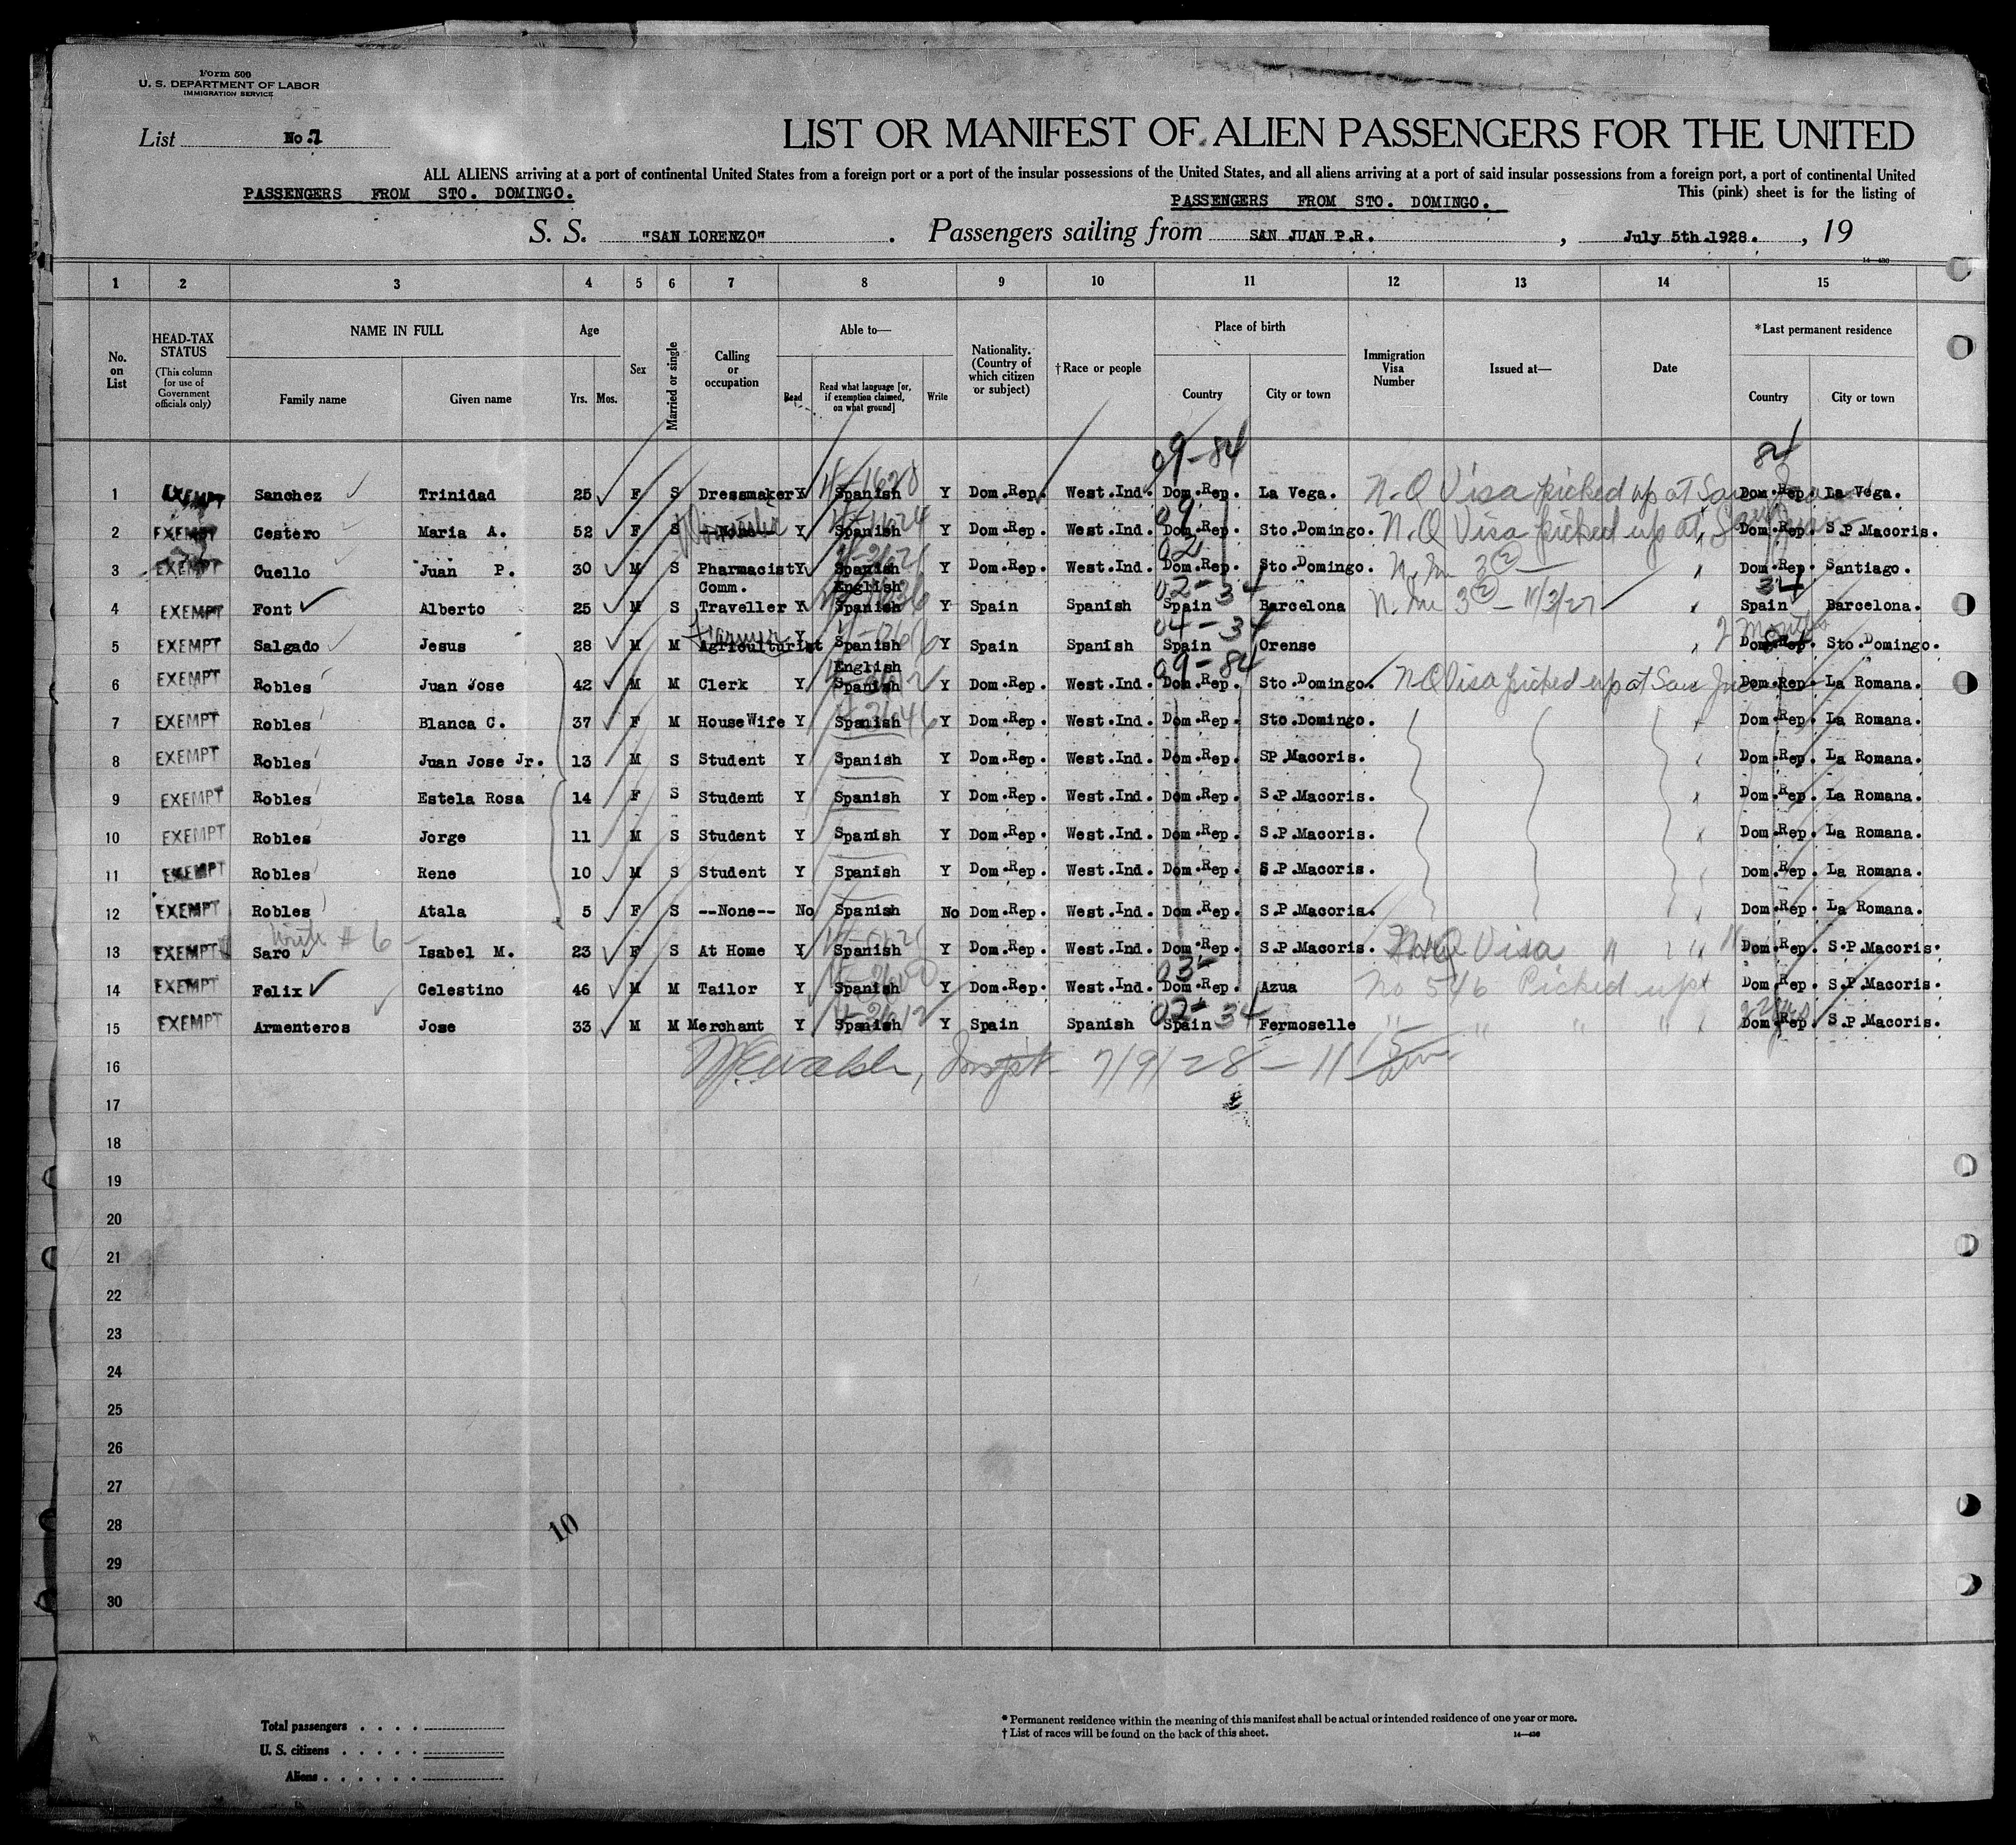 Form 500
U. S. DEPARTMENT OF LABOR
IMMIGRATION SERVICE
List No.7
LIST OR MANIFEST OF ALIEN PASSENGERS FOR THE UNITED
ALL ALIENS arriving at a port of continental United States from a foreign port or a port of the insular possessions of the United States, and all aliens arriving at a port of said insular possessions from a foreign port, a port of continental United
This (pink) sheet is for the listing of
PASSENGERS FROM STO. DOMINGO. PASSENGERS FROM STO. DOMINGO.
S. S. "SAN LORENZO". Passengers sailing from SAN JUAN P.R. , July 5th.1928. , 19
14—430
1 2 3 4 5 6 7 8 9 10 11 12 13 14 15
No. on List
HEAD-TAX STATUS
(This column for use of Government officials only)
NAME IN FULL
Family name Given name
Age
Yrs. Mos.
Sex
Married or single
Calling or occupation
Able to—
Read
Read what language [or, if exemption claimed, on what ground]
Write
Nationality. (Country of which citizen or subject)
†Race or people
Place of birth
Country City or town
Immigration Visa Number
Issued at—
Date
*Last permanent residence
Country City or town
09-84 84
1 EXEMPT Sanchez Trinidad 25 F S Dressmaker Y Spanish Y Dom.Rep. West.Ind. Dom.Rep. La Vega. N.Q Visa picked up at San Juan Dom.Rep. La Vega.
2 EXEMPT Cestero Maria A. 52 F S --None-- Y Spanish Y Dom.Rep. West.Ind. Dom.Rep. Sto.Domingo. N.Q Visa picked up at San Juan Dom.Rep. S.P.Macoris.
3 EXEMPT Cuello Juan P. 30 M S Pharmacist Y Spanish Y Dom.Rep. West.Ind. Dom.Rep. Sto.Domingo. Dom.Rep. Santiago.
Comm. English 02-34 34
4 EXEMPT Font Alberto 25 M S Traveller Y Spanish Y Spain Spanish Spain Barcelona 11/3/27 Spain Barcelona.
Farmer 04-34 2 Months
5 EXEMPT Salgado Jesus 28 M M Agriculturist Y Spanish Y Spain Spanish Spain Orense Dom.Rep. Sto.Domingo.
English 09-84
6 EXEMPT Robles Juan Jose 42 M M Clerk Y Spanish Y Dom.Rep. West.Ind. Dom.Rep. Sto.Domingo. NQ Visa picked up at San Juan Dom.Rep. La Romana.
7 EXEMPT Robles Blanca C. 37 F M HouseWife Y Spanish Y Dom.Rep. West.Ind. Dom.Rep. Sto.Domingo. Dom.Rep. La Romana.
8 EXEMPT Robles Juan Jose Jr. 13 M S Student Y Spanish Y Dom.Rep. West.Ind. Dom.Rep. SP.Macoris. Dom.Rep. La Romana.
9 EXEMPT Robles Estela Rosa 14 F S Student Y Spanish Y Dom.Rep. West.Ind. Dom.Rep. S.P.Macoris. Dom.Rep. La Romana.
10 EXEMPT Robles Jorge 11 M S Student Y Spanish Y Dom.Rep. West.Ind. Dom.Rep. S.P.Macoris. Dom.Rep. La Romana.
11 EXEMPT Robles Rene 10 M S Student Y Spanish Y Dom.Rep. West.Ind. Dom.Rep. S.P.Macoris. Dom.Rep. La Romana.
12 EXEMPT Robles Atala 5 F S --None-- No Spanish No Dom.Rep. West.Ind. Dom.Rep. S.P.Macoris. Dom.Rep. La Romana.
with # 6
13 EXEMPT Saro Isabel M. 23 F S At Home Y Spanish Y Dom.Rep. West.Ind. Dom.Rep. S.P.Macoris. Visa " " " Dom.Rep. S.P.Macoris.
14 EXEMPT Felix Celestino 46 M M Tailor Y Spanish Y Dom.Rep. West.Ind. Dom.Rep. Azua No 546 Picked up Dom.Rep. S.P.Macoris.
02-34
15 EXEMPT Armenteros Jose 33 M M Merchant Y Spanish Y Spain Spanish Spain Fermoselle " " " " Dom.Rep. S.P.Macoris.
16 Inspt 7/9/28 - 11 15 am
17
18
19
20
21
22
23
24
25
26
27
28
10
29
30
Total passengers . . . .
U. S. citizens . . . . .
Aliens . . . . . .
* Permanent residence within the meaning of this manifest shall be actual or intended residence of one year or more.
† List of races will be found on the back of this sheet.
14—430